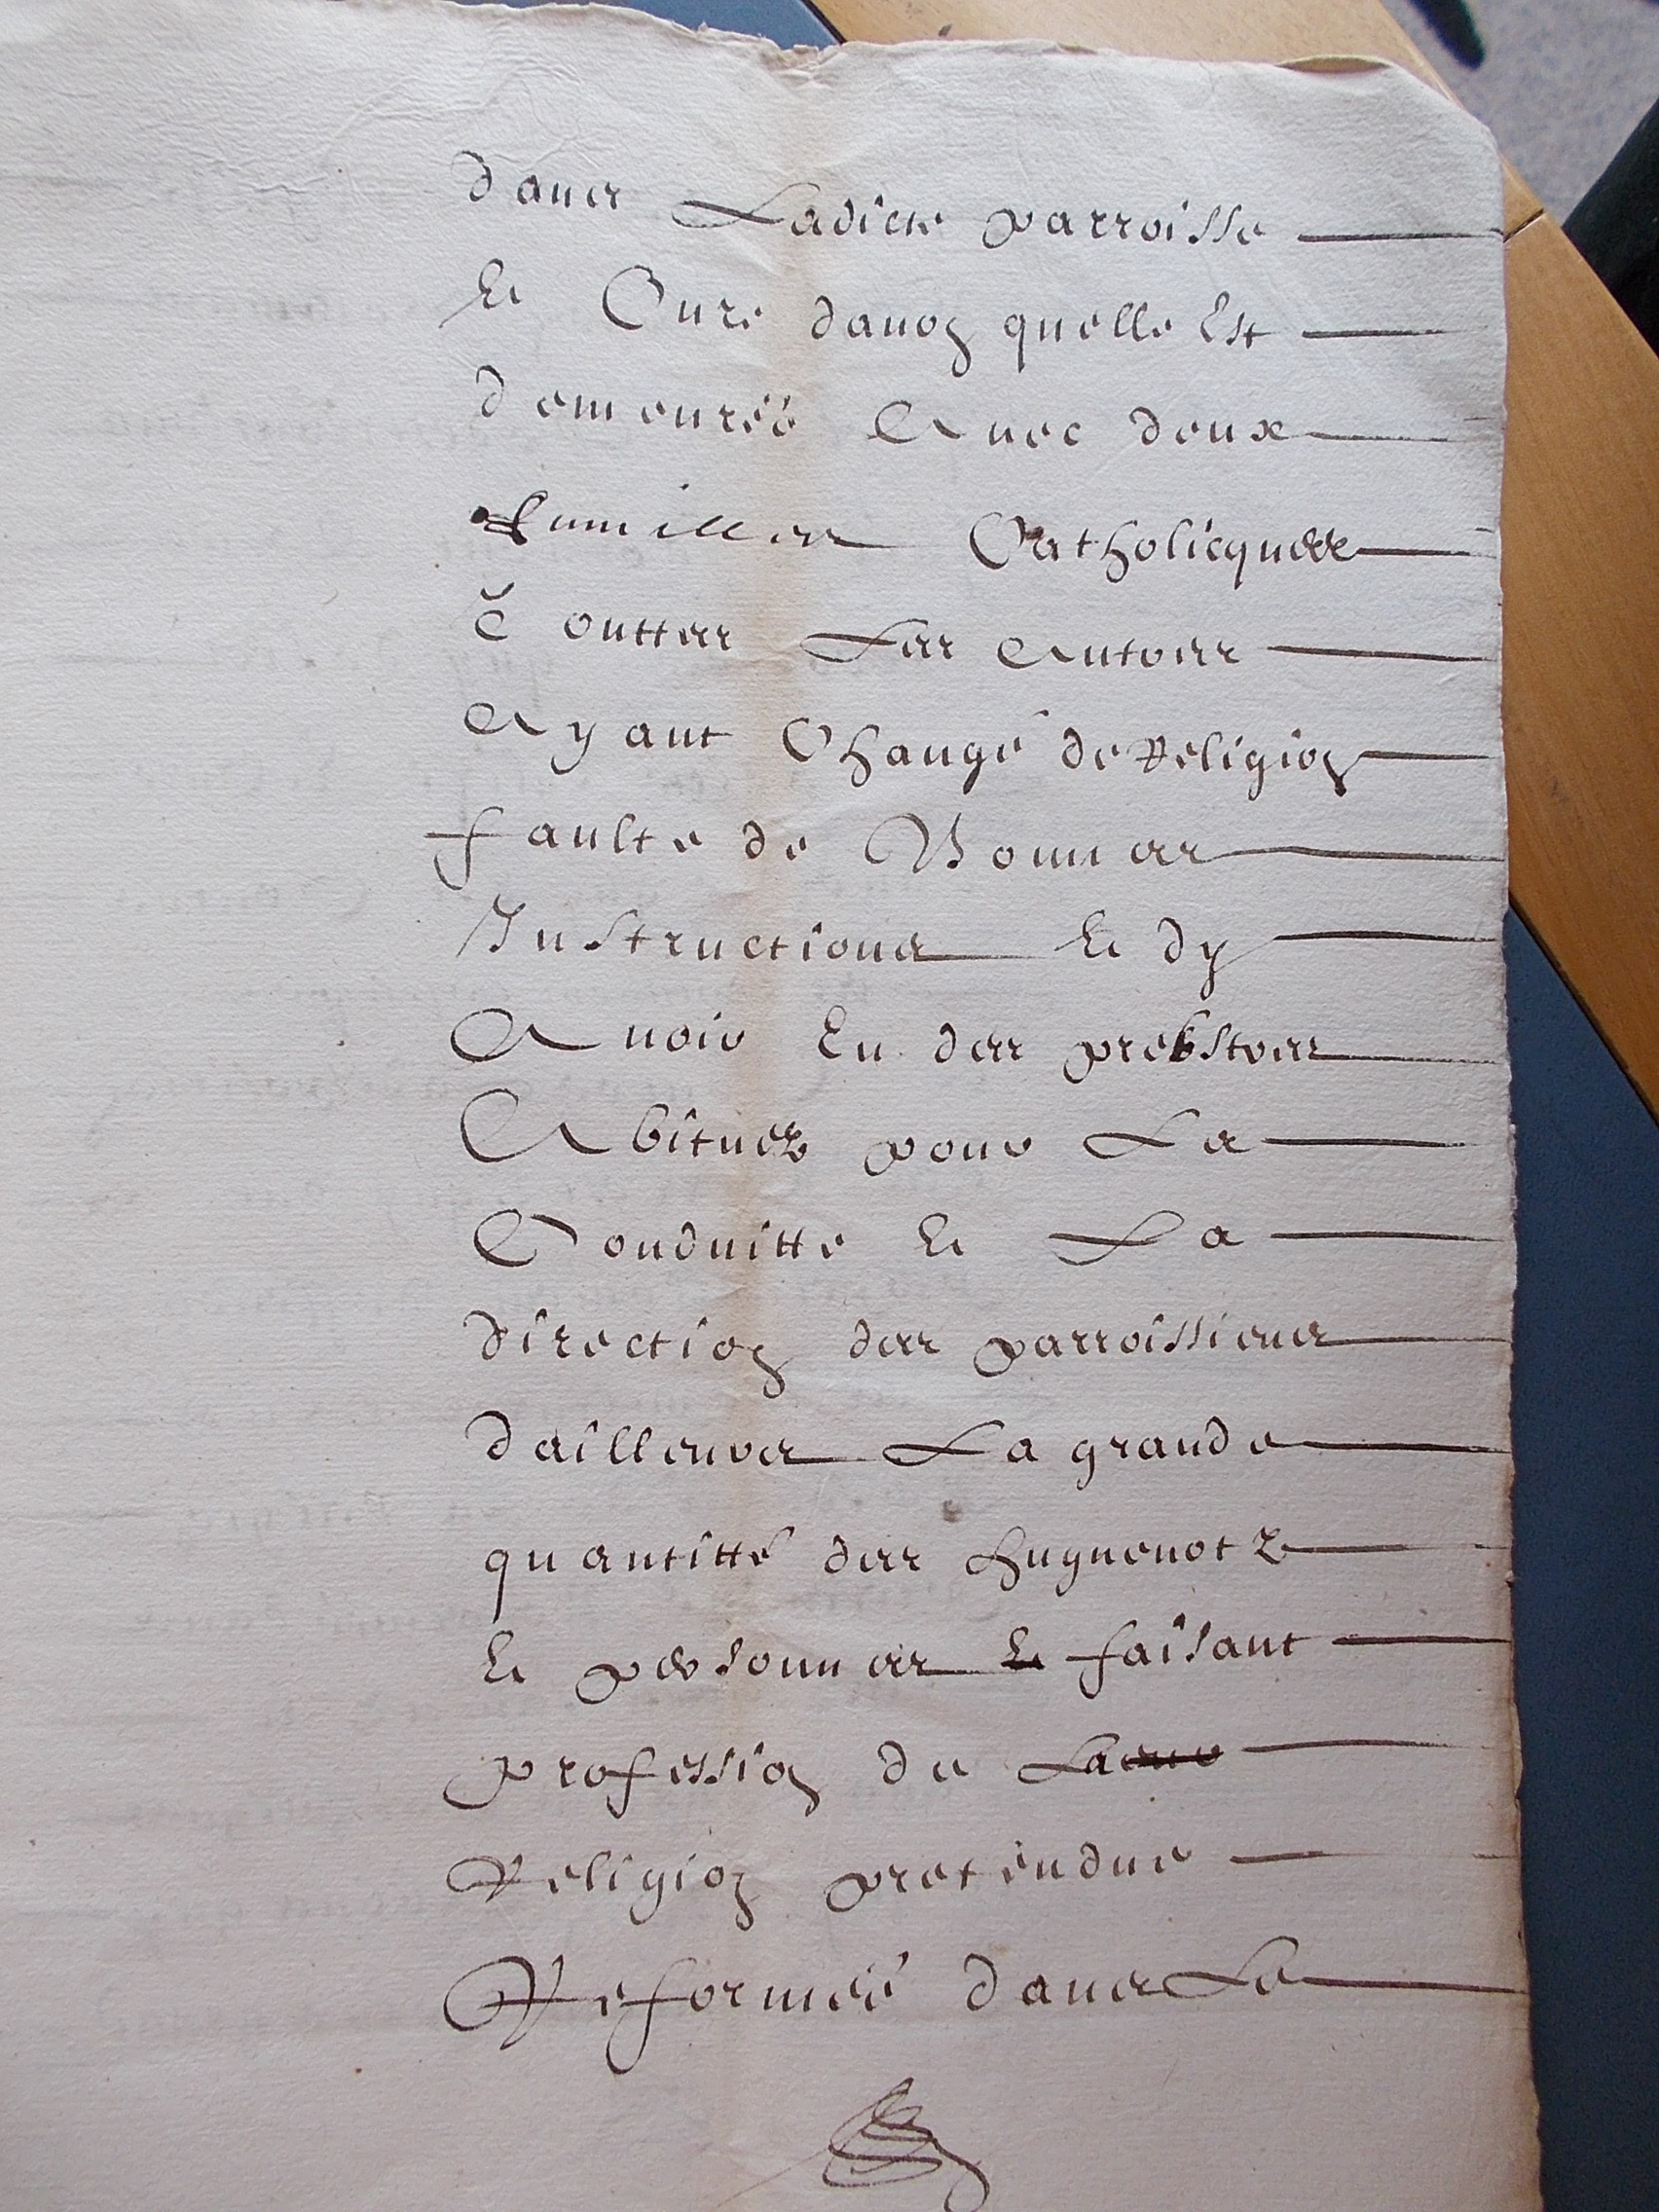 dans Ladicte parroisse
Et Cure davon quelle Est
demeuréé Avec deux
familles Catholicques
Et outtes Les Autres
Ayant Changé de Religion
faulte de Bonnes
Instructions Et dy
Avoir Eu des prebstres
Abituez pour La
Conduitte Et La
direction des parroissiens
dailleurs La grande
quantitté des huguenotz
Et personnes Et faisant
profession de La
Religion pretendue
Reforméé dans Le